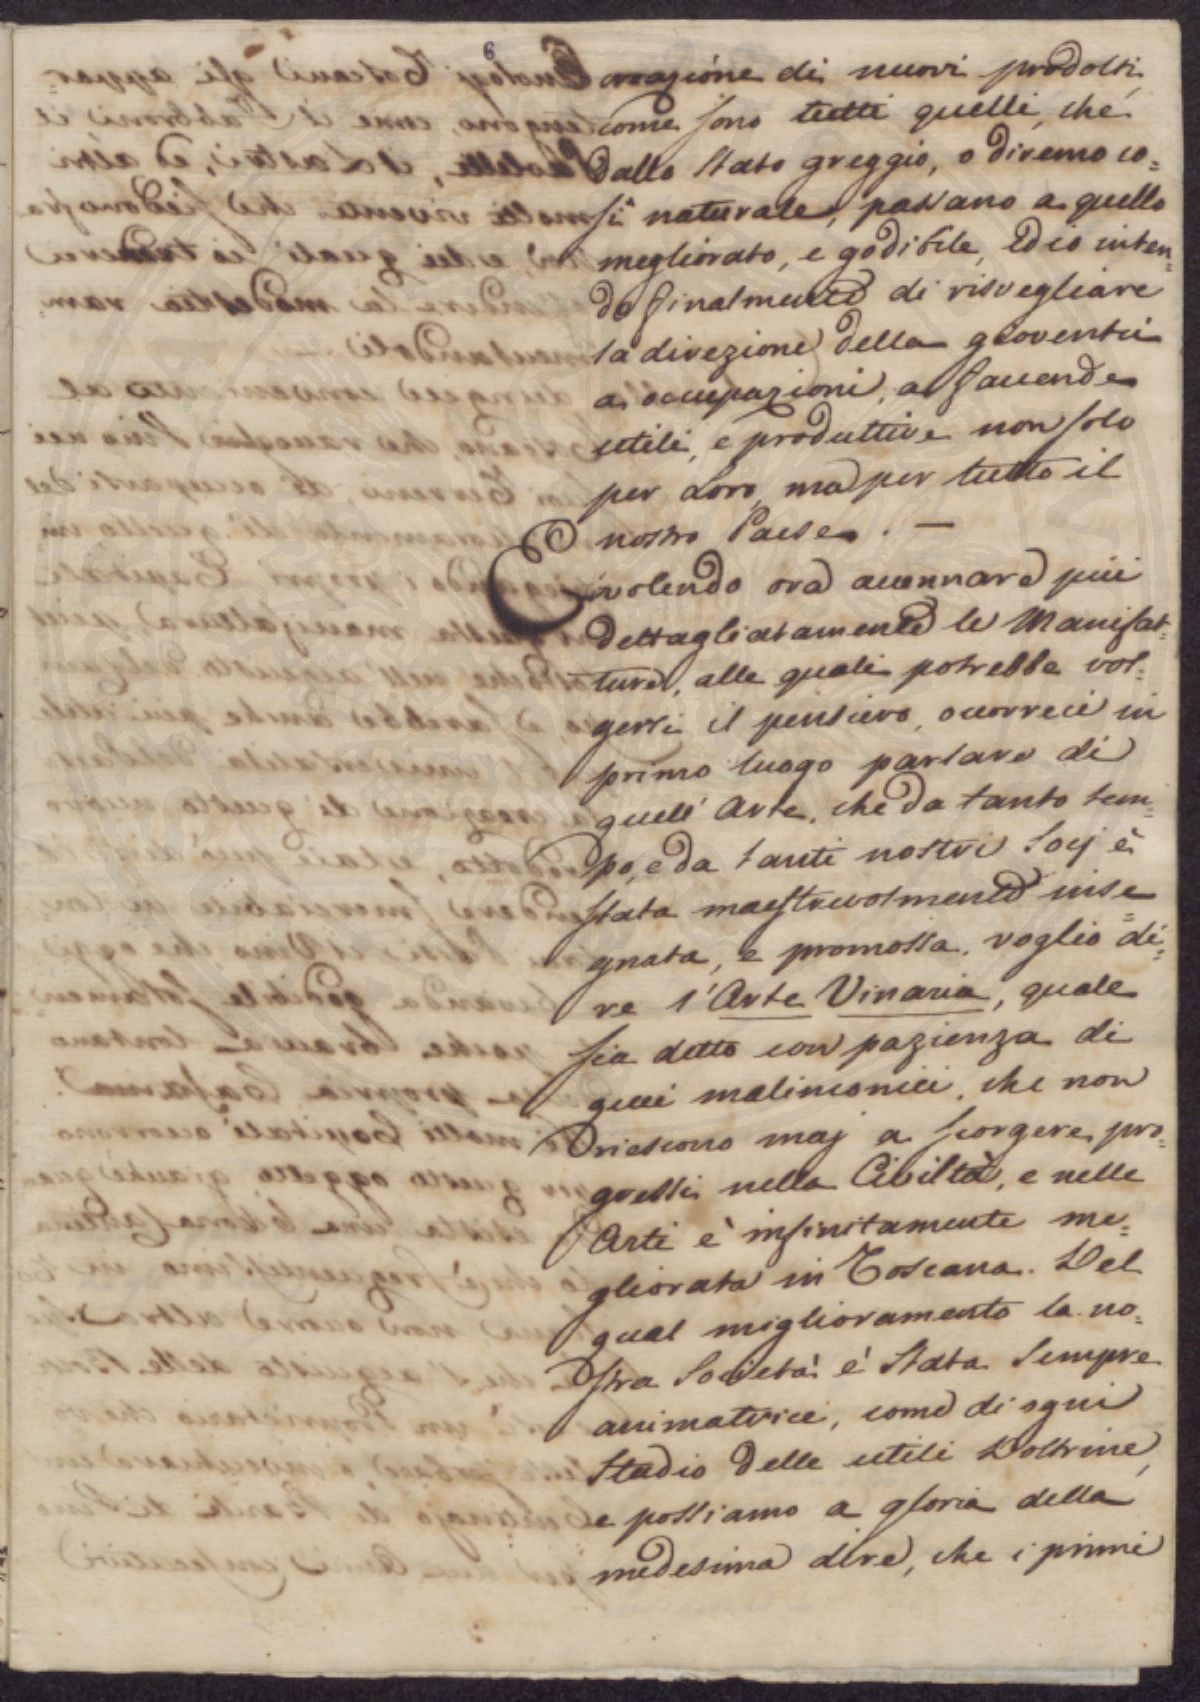 6
creazione di nuovi prodotti,
come sono tutti quelli, che
dallo stato greggio, o diremo co=
sì naturale, passano a quello
megliorato, e godibile, Ed io inten=
do finalmente di risvegliare
la direzione della gioventù
a occupazioni, a faccende
utili, e produttive non solo
per Loro, ma per tutto il
nostro Paese. —
E volendo ora accennare più
dettagliatamente le Manifat=
ture, alle quali potrebbe vol=
gersi il pensiero, occorreci in
primo luogo parlare di
quell' Arte, che da tanto tem=
po, e da tanti nostri Socj è
stata maestrevolmente inse=
gnata, e promossa, voglio di=
re l'Arte Vinaria, quale
sia detto con pazienza di
quei malinconici, che non
riescono maj a scorgere pro=
gressi nella Civiltà, e nelle
Arti è infinitamente me=
gliorata in Toscana. Del
qual miglioramento la no=
stra Società è stata sempre
animatrice, come di ogni
Studio delle utili Dottrine,
e possiamo a gloria della
medesima dire, che i primi